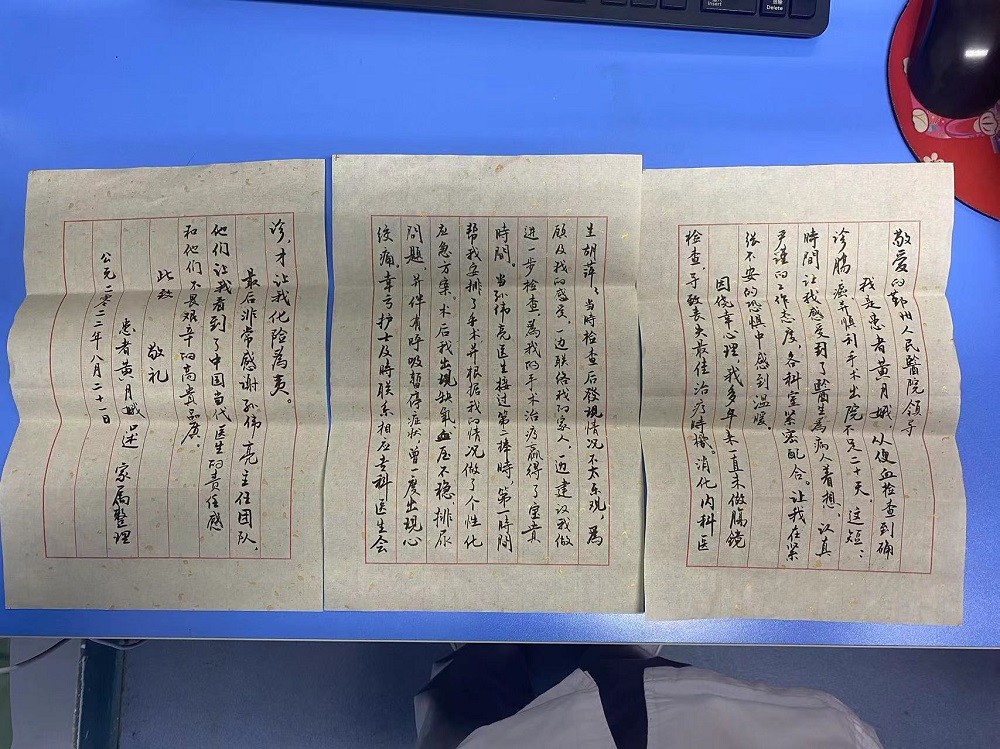 敬爱的鄞州人民醫院领导
我是患者黄月娥，从便血检查到确
诊肠癌并慎到手术出院不足二十天，这短：
時間让我感受到了醫生為病人着想，认真
严谨的工作态度，各科室紧密配合。让我在紧
张不安的恐惧中感到温暖。
因侥幸心理，我多年来一直未做腸镜
检查，导致丧失最佳治疗時機。消化内科医
生胡萍：当時检查后發現情况不太乐观，為
顾及我的感受，一边联络我的家人，一边建议我做
进一步检查，為我的手术治疗赢得了宝贵
時間。当孙伟亮医生接过第二棒時，第一時間
帮我安排了手术并根据我的情况做了个性化
应急方案。术后我出现缺氧血压不稳排尿
问题，并伴有呼吸暂停症状，曾一度出现心
绞痛。幸亏护士及時联系相应专科医生会
诊，才让我化险為夷。
最后非常感谢孙伟亮主任团队，
他们让我看到了中国当代医生的责任感
和他们不畏艰辛的高贵品质。
此致
敬礼
患者黄月娥口述 家属整理
公元二零二二年八月二十一日
Insert
Delete